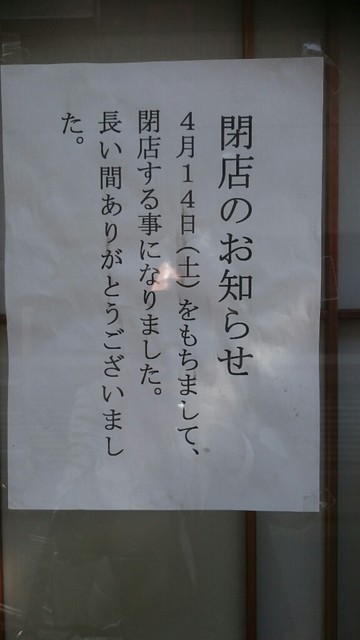 閉店のお知らせ
４月１４日（土）をもちまして、
閉店する事になりました。
長い間ありがとうございまし
た。